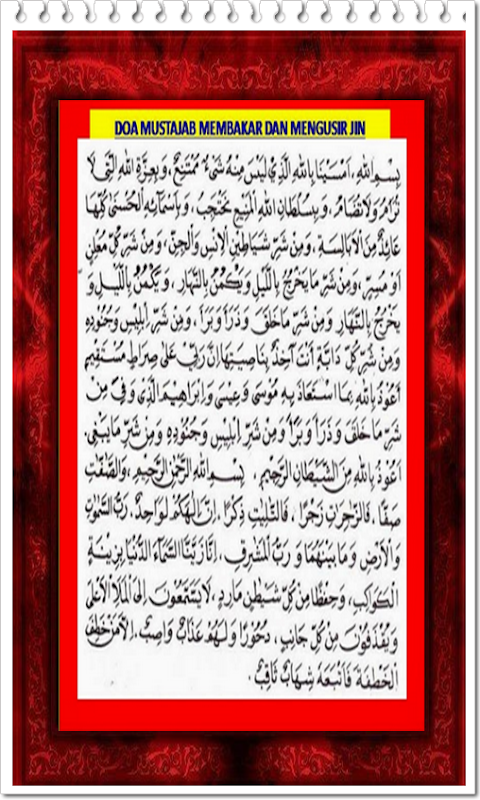 DOA MUSTAJAB MEMBAKAR DAN MENGUSIR JIN
بِسْمِ اللهِ، اَمْسَيْنَا بِاللهِ الَّذِيْ لَيْسَ مِنْهُ شَيْءٌ مُمْتَنِعٌ، وَبِعِزَّةِ اللهِ الَّتِيْ لَا
تُرَامُ وَلَا تُضَامُ، وَبِسُلْطَانِ اللهِ الْمَنِيْعِ نَحْتَجِبُ، وَبِاَسْمَائِهِ الْحُسْنٰى كُلِّهَا
عَائِذٌ مِنَ الْاَبَالِسَةِ، وَمِنْ شَرِّ شَيَاطِيْنِ الْاِنْسِ وَالْجِنِّ، وَمِنْ شَرِّ كُلِّ مُعْلِنٍ
اَوْ مُسِرٍّ، وَمِنْ شَرِّ مَا يَخْرُجُ بِاللَّيْلِ وَيَكْمُنُ بِالنَّهَارِ، وَيَكْمُنُ بِاللَّيْلِ وَ
يَخْرُجُ بِالنَّهَارِ وَمِنْ شَرِّ مَا خَلَقَ وَذَرَأَ وَبَرَأَ، وَمِنْ شَرِّ اِبْلِيْسَ وَجُنُوْدِهِ
وَمِنْ شَرِّ كُلِّ دَابَّةٍ اَنْتَ آخِذٌ بِنَاصِيَتِهَا اِنَّ رَبِّيْ عَلٰى صِرَاطٍ مُسْتَقِيْمٍ
اَعُوْذُ بِاللهِ بِمَا اسْتَعَاذَ بِهِ مُوْسٰى وَعِيْسٰى وَاِبْرَاهِيْمَ الَّذِيْ وَفّٰى مِنْ
شَرِّ مَا خَلَقَ وَذَرَأَ وَبَرَأَ وَمِنْ شَرِّ اِبْلِيْسَ وَجُنُوْدِهِ وَمِنْ شَرِّ مَا يَبْغِى
اَعُوْذُ بِاللهِ مِنَ الشَّيْطَانِ الرَّجِيْمِ. بِسْمِ اللهِ الرَّحْمٰنِ الرَّحِيْمِ، وَالصّٰفّٰتِ
صَفًّا، فَالزّٰجِرٰتِ زَجْرًا، فَالتّٰلِيٰتِ ذِكْرًا، اِنَّ اِلٰهَكُمْ لَوَاحِدٌ، رَبُّ السَّمٰوٰتِ
وَالْاَرْضِ وَمَا بَيْنَهُمَا وَرَبُّ الْمَشَارِقِ، اِنَّا زَيَّنَّا السَّمَآءَ الدُّنْيَا بِزِيْنَةِ
الْكَوَاكِبِ، وَحِفْظًا مِنْ كُلِّ شَيْطٰنٍ مَارِدٍ، لَا يَسَّمَّعُوْنَ اِلَى الْمَلَاِ الْاَعْلٰى
وَيُقْذَفُوْنَ مِنْ كُلِّ جَانِبٍ، دُحُوْرًا وَلَهُمْ عَذَابٌ وَاصِبٌ، اِلَّا مَنْ خَطِفَ
الْخَطْفَةَ فَاَتْبَعَهُ شِهَابٌ ثَاقِبٌ.